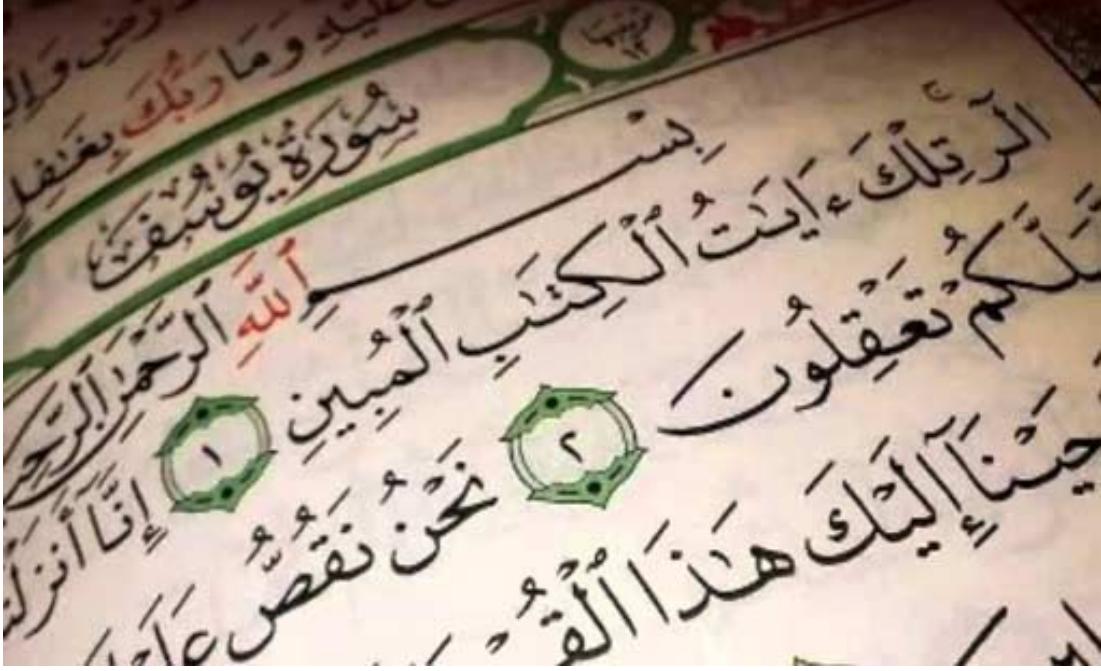 عَلَيْهِ وَمَا رَبُّكَ بِغَٰفِلٍ
ترتيبها ١٢
سُورَةُ يُوسُفَ
بِسْمِ ٱللَّهِ ٱلرَّحْمَٰنِ ٱلرَّحِي
الٓر ۚ تِلْكَ ءَايَٰتُ ٱلْكِتَٰبِ ٱلْمُبِينِ ١ إِنَّآ أَنزَلْنَ
لَّكُمْ تَعْقِلُونَ ٢ نَحْنُ نَقُصُّ عَلَيْ
حَيْنَآ إِلَيْكَ هَٰذَا ٱلْقُرْ